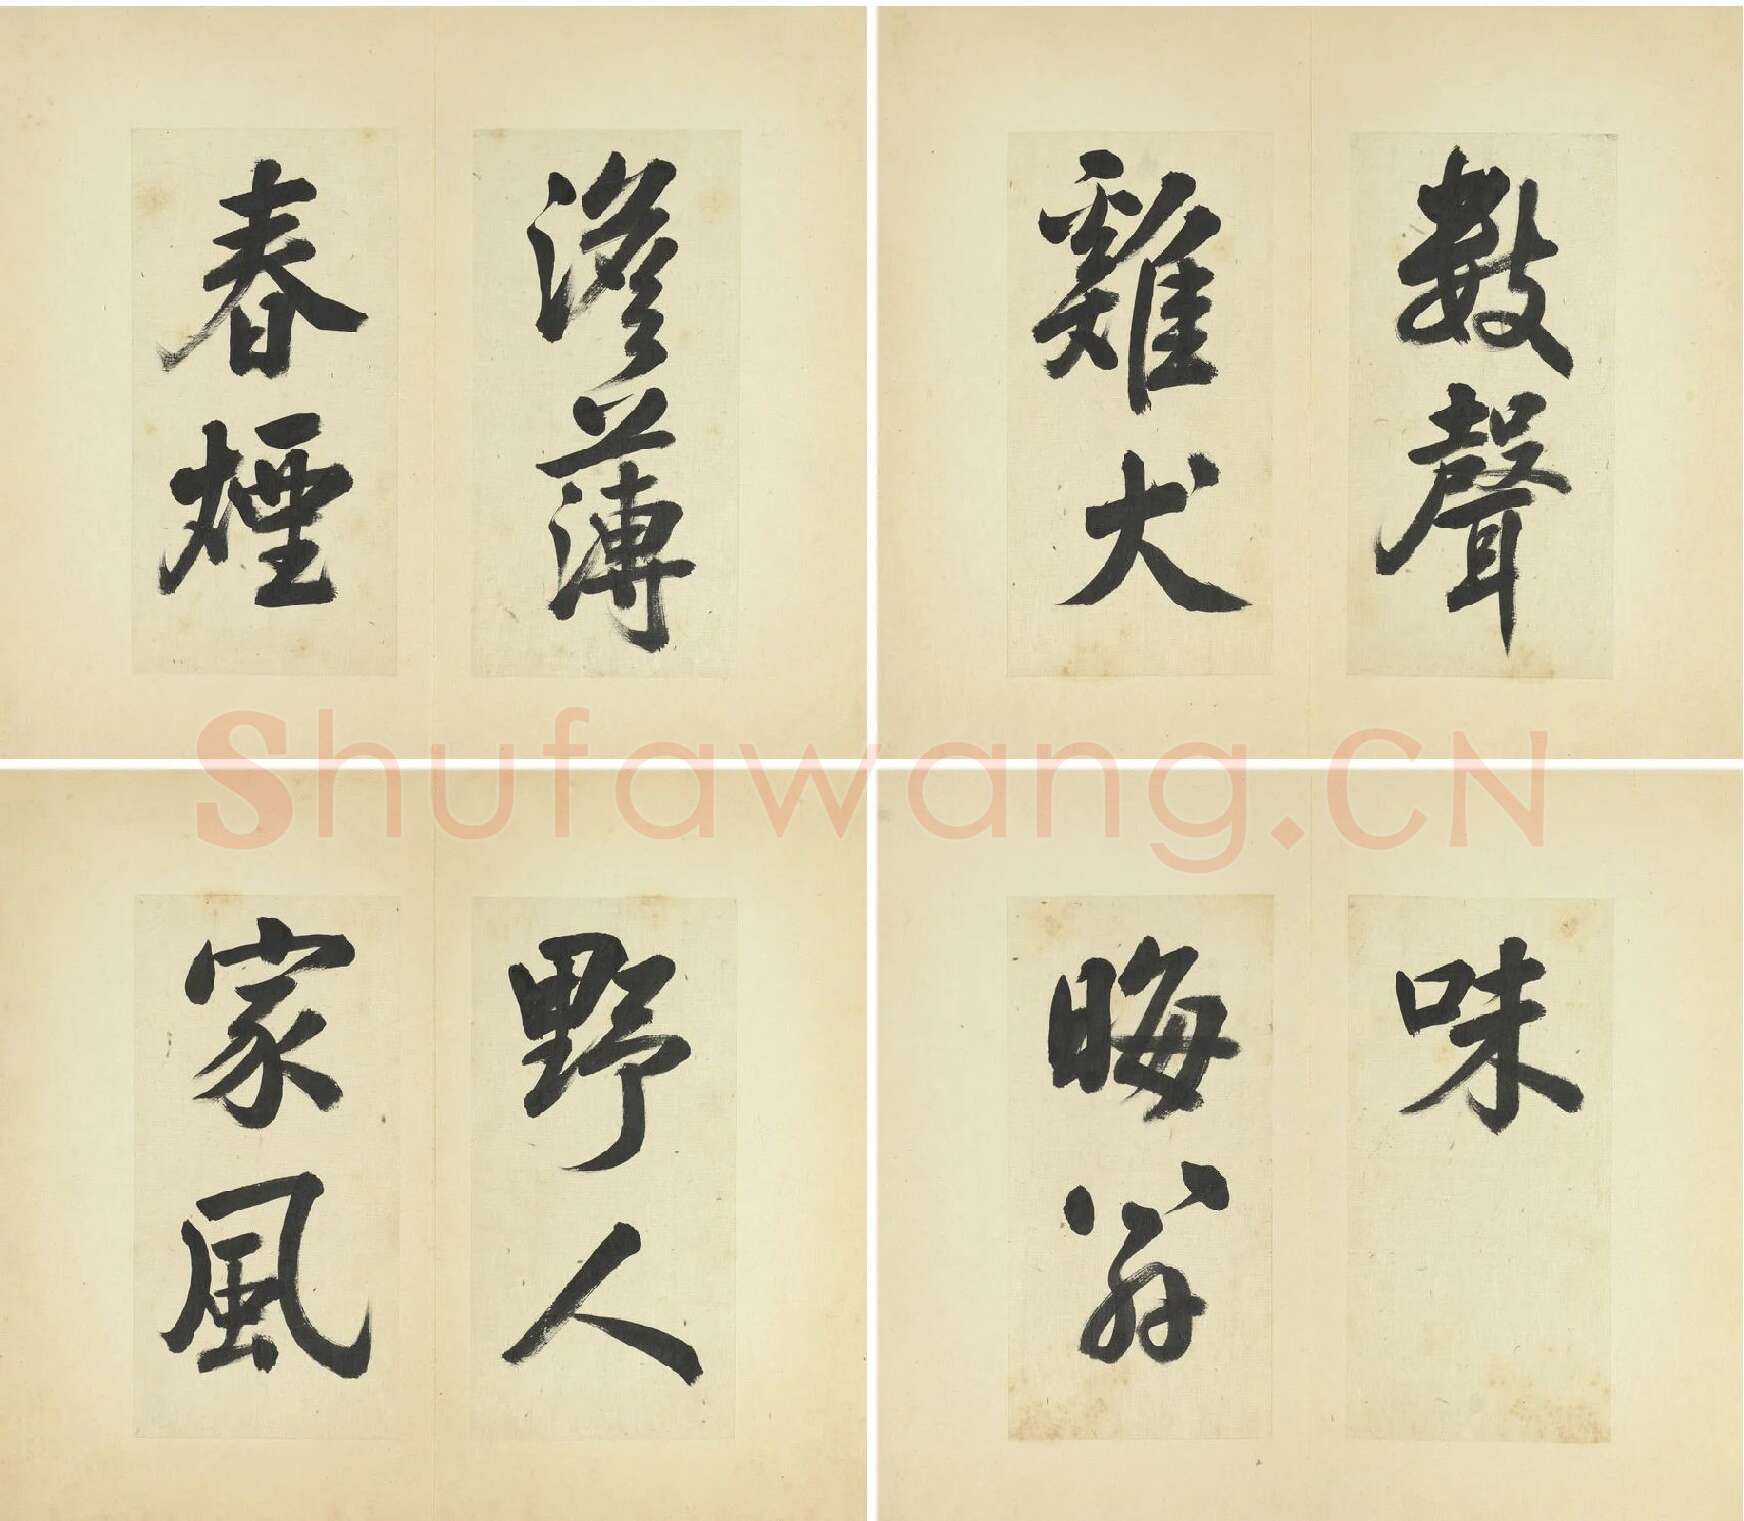 澹薄
春煙
數聲
雞犬
野人
家風
味
晦翁
Shufawang.CN